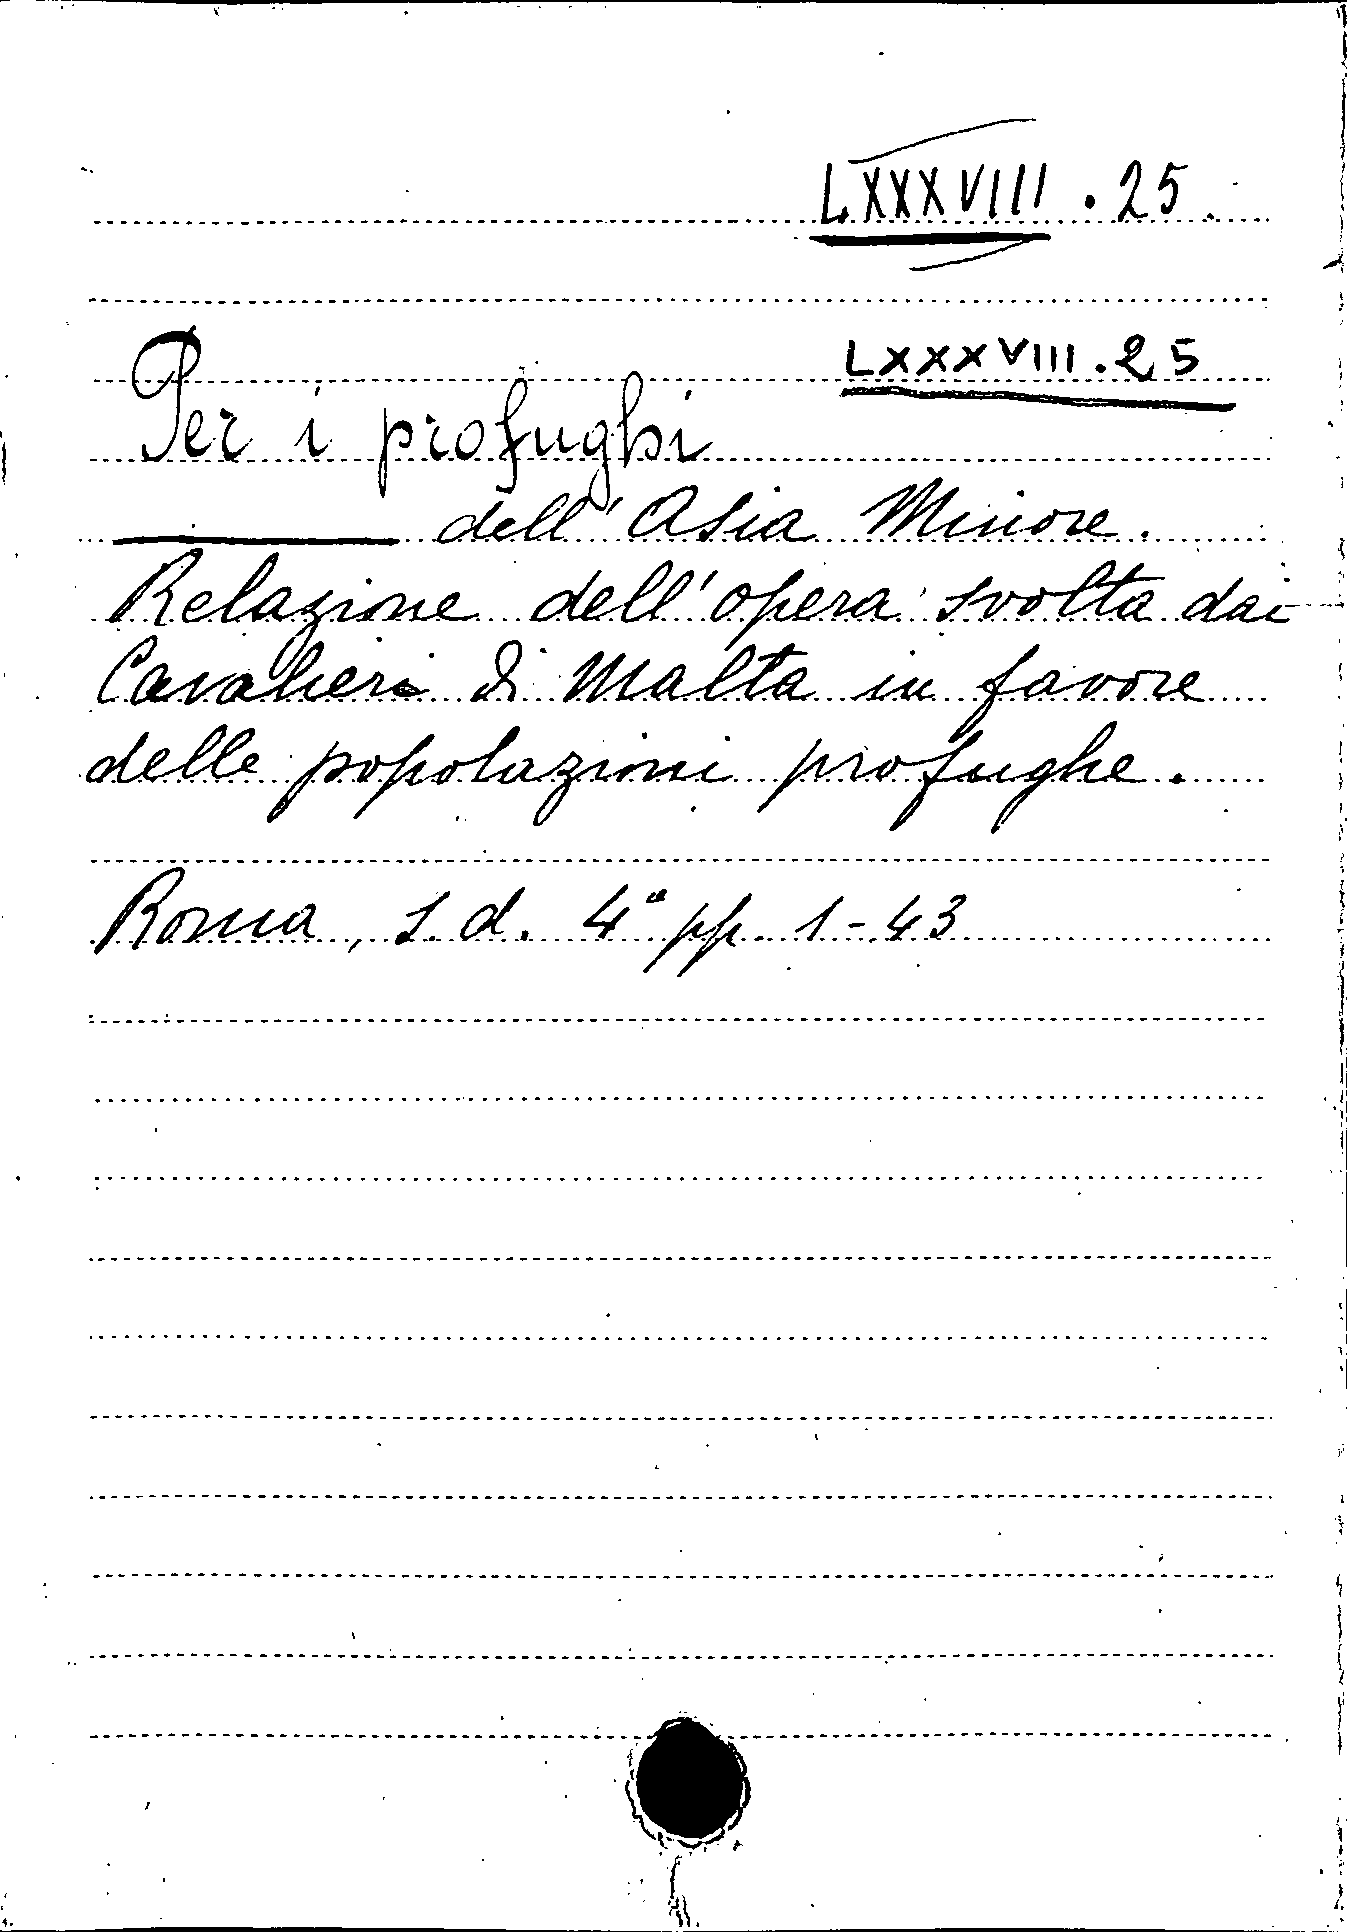 LXXXVIII . 25.
LXXXVIII . 25
Per i profughi
dell' Asia Minore.
Relazione dell' opera svolta dai
Cavalieri di Malta in favore
delle popolazioni profughe.
Roma, s. d. 4° pp. 1-43